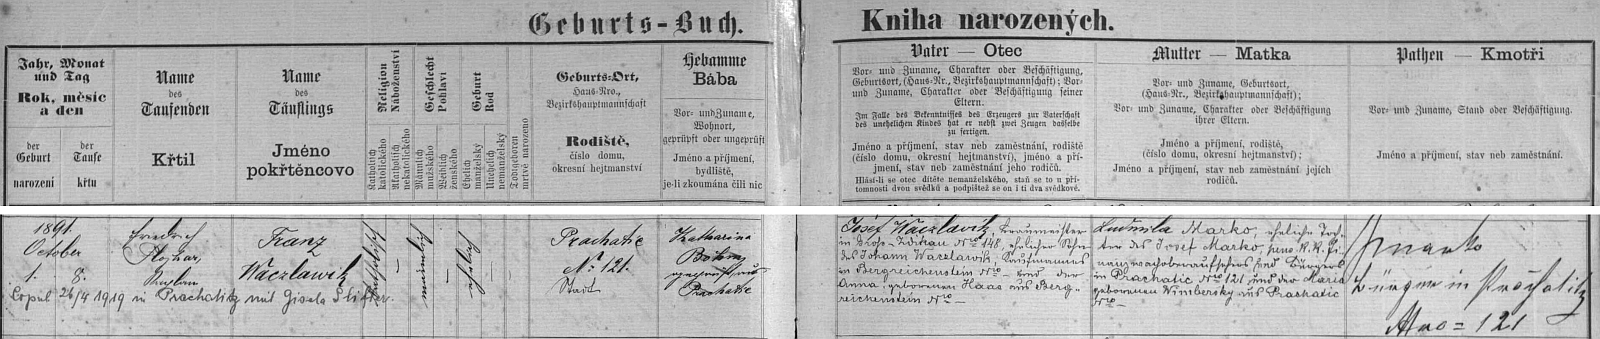 Geburts-Buch. Kniha narozených.
Jahr, Monat und Tag
Rok, měsíc a den
der Geburt
narození
der Taufe
křtu
Name
des
Taufenden
Křtil
Name
des
Täuflings
Jméno
pokřténcovo
Religion
Náboženství
Katholisch
katolického
Akatholisch
nekatolického
Geschlecht
Pohlaví
Männlich
mužského
Weiblich
ženského
Geburt
Rod
Ehelich
manželský
Unehelich
nemanželský
Todtgeboren
mrtvě narozeno
Geburts-Ort,
Haus-Nro.,
Bezirkshauptmannschaft
Rodiště,
číslo domu,
okresní hejtmanství
Hebamme
Bába
Vor- und Zuname,
Wohnort,
geprüft oder ungeprüft
Jméno a příjmení,
bydliště,
je-li zkoumána čili nic
Vater — Otec
Vor- und Zuname, Charakter oder Beschäftigung,
Geburtsort, (Haus-Nr., Bezirkshauptmannschaft); Vor-
und Zuname, Charakter oder Beschäftigung seiner
Eltern.
Im Falle des Bekenntnisses des Erzeugers zur Vaterschaft
des unehelichen Kindes hat er nebst zwei Zeugen dasselbe
zu fertigen.
Jméno a příjmení, stav neb zaměstnání, rodiště
(číslo domu, okresní hejtmanství), jméno a pří-
jmení, stav neb zaměstnání jeho rodičů.
Hlásí-li se otec dítěte nemanželského, staň se to u pří-
tomnosti dvou svědků a podpištež se on i ti dva svědkové.
Mutter — Matka
Vor- und Zuname, Geburtsort,
(Haus-Nr., Bezirkshauptmannschaft);
Vor- und Zuname, Charakter oder Beschäftigung
ihrer Eltern.
Jméno a příjmení, rodiště,
(číslo domu, okresní hejtmanství);
Jméno a příjmení, stav neb zaměstnání jejích
rodičů.
Pathen — Kmotři
Vor- und Zuname, Stand oder Beschäftigung.
Jméno a příjmení, stav neb zaměstnání.
1891.
October
1. 8.
Friedrich
Kaplan
Franz
Waczlawik
katholisch
männlich
ehelich
Prachatic
No. 121.
Stadt
Katharina
Böhm
geprüft aus
Prachatic
Copul. 26/4 1919 in Prachatitz mit Gisela Stifter.
Josef Waczlawik, Braumeister
in Gross-Zdikau Nro 148, ehelicher Sohn
des Johann Waczlawik, Kaufmannes
in Bergreichenstein Nro — und der
Anna, geborenen Haas aus Berg-
reichenstein Nro —
Ludmila Marko, eheliche Toch-
ter des Josef Marko, pens. K.K. Fi-
nanzwachoberaufsehers und Bürgers
in Prachatic Nro 121 und der Maria
geborenen Wimbersky aus Prachatic
Nro —
Marko
Bürger in Prachatitz
Nro = 121